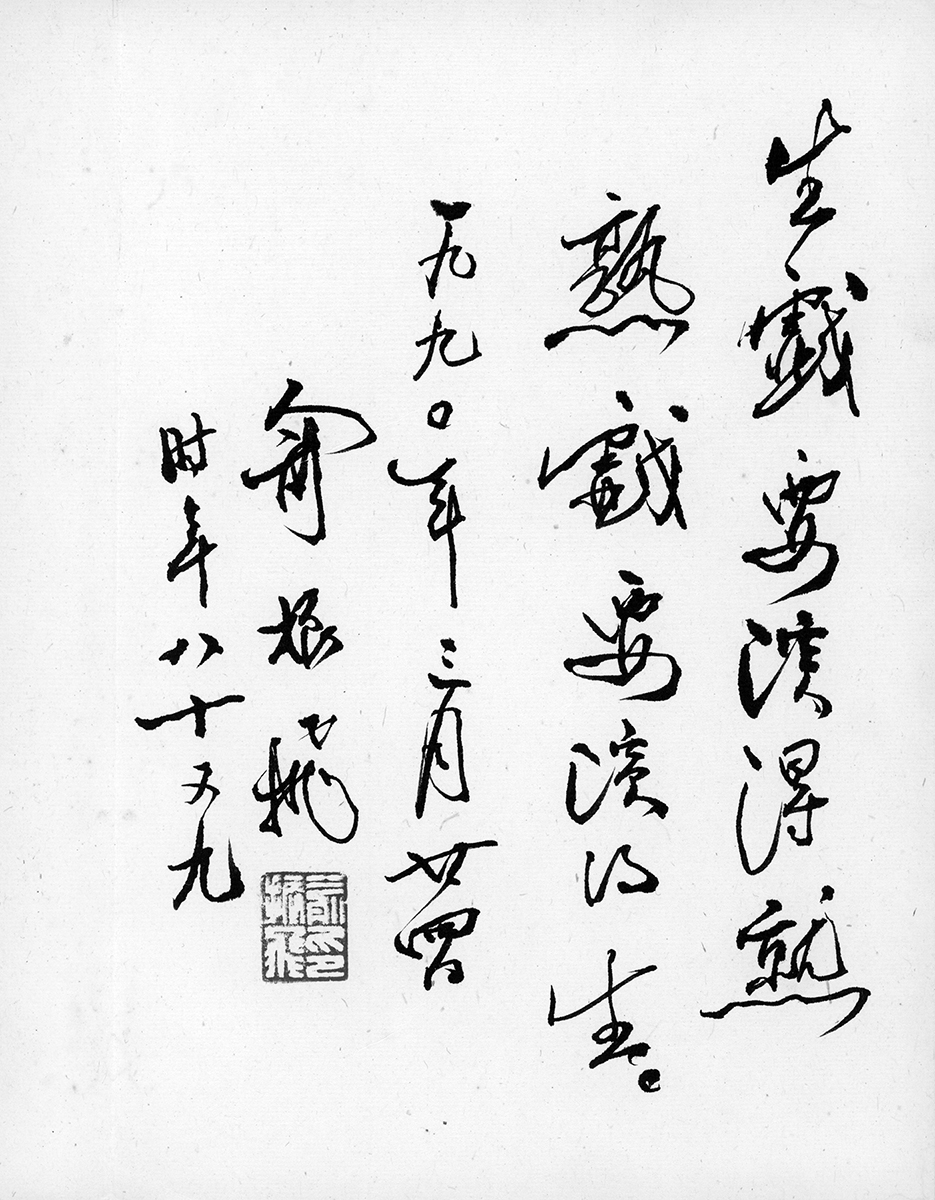 生戲要演得熟
熟戲要演得生。
一九九〇年三月廿四日
俞振飛
时年八十又九
俞振飛印